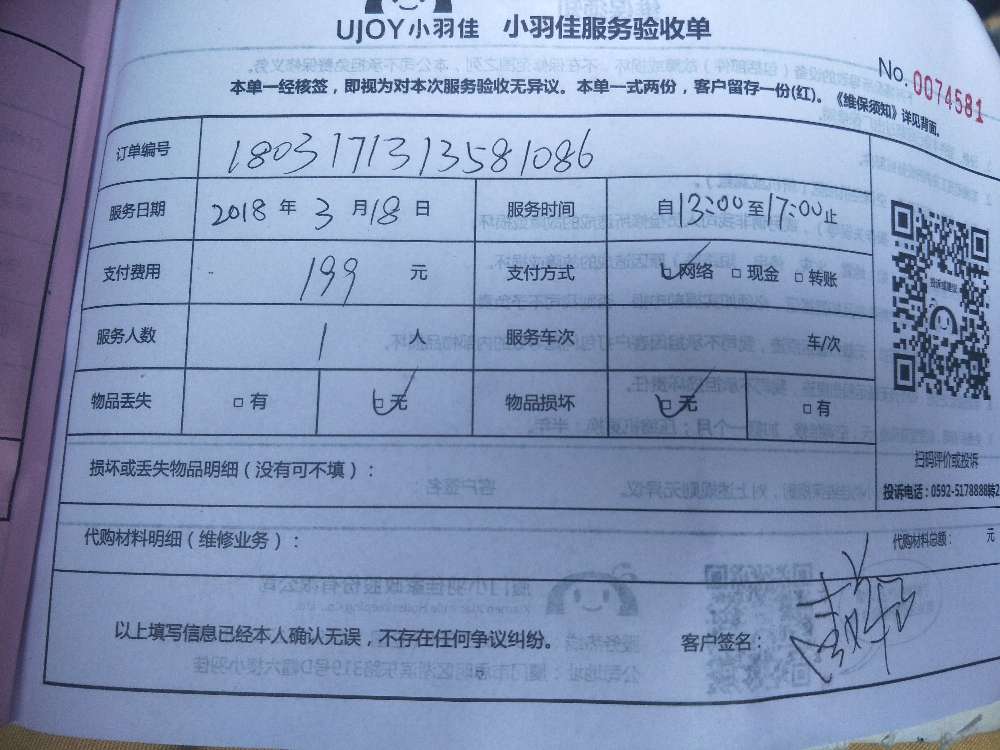 UJOY小羽佳 小羽佳服务验收单
No. 0074581
本单一经核签，即视为对本次服务验收无异议。本单一式两份，客户留存一份(红)。《维保须知》详见背面。
订单编号 1803171313581086
服务日期 2018 年 3 月 18 日 服务时间 自 13:00 至 17:00 止
支付费用 199 元 支付方式 ☑网络 □现金 □转账
服务人数 1 人 服务车次 车/次
物品丢失 □有 ☑无 物品损坏 ☑无 □有
投诉或建议
扫码评价或投诉
投诉电话：0592-5178888转2
损坏或丢失物品明细（没有可不填）：
代购材料明细（维修业务）： 代购材料总额： 元
以上填写信息已经本人确认无误，不存在任何争议纠纷。 客户签名：